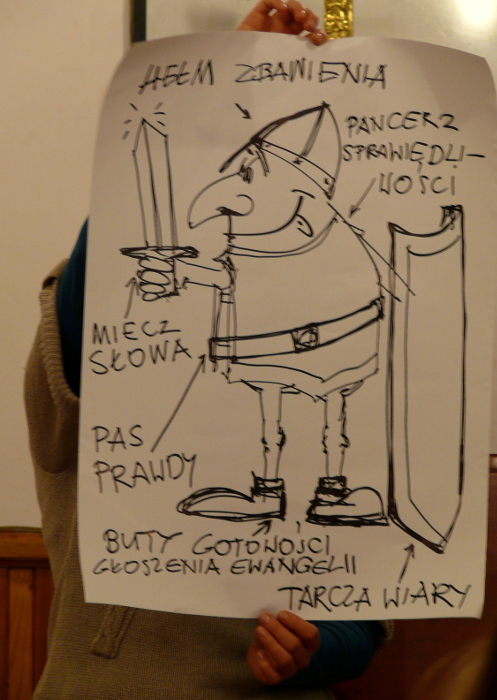 HEŁM ZBAWIENIA
PANCERZ
SPRAWIĘDLI-
WOŚCI
MIECZ
SŁOWA
PAS
PRAWDY
BUTY GOTOWOŚCI
GŁOSZENIA EWANGELII
TARCZA WIARY